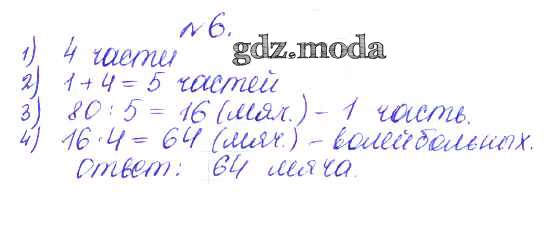 №6.
1) 4 части
gdz.moda
2) 1+4=5 частей
3) 80:5=16 (мяч.) – 1 часть.
4) 16·4=64 (мяч.) – волейбольных.
Ответ: 64 мяча.